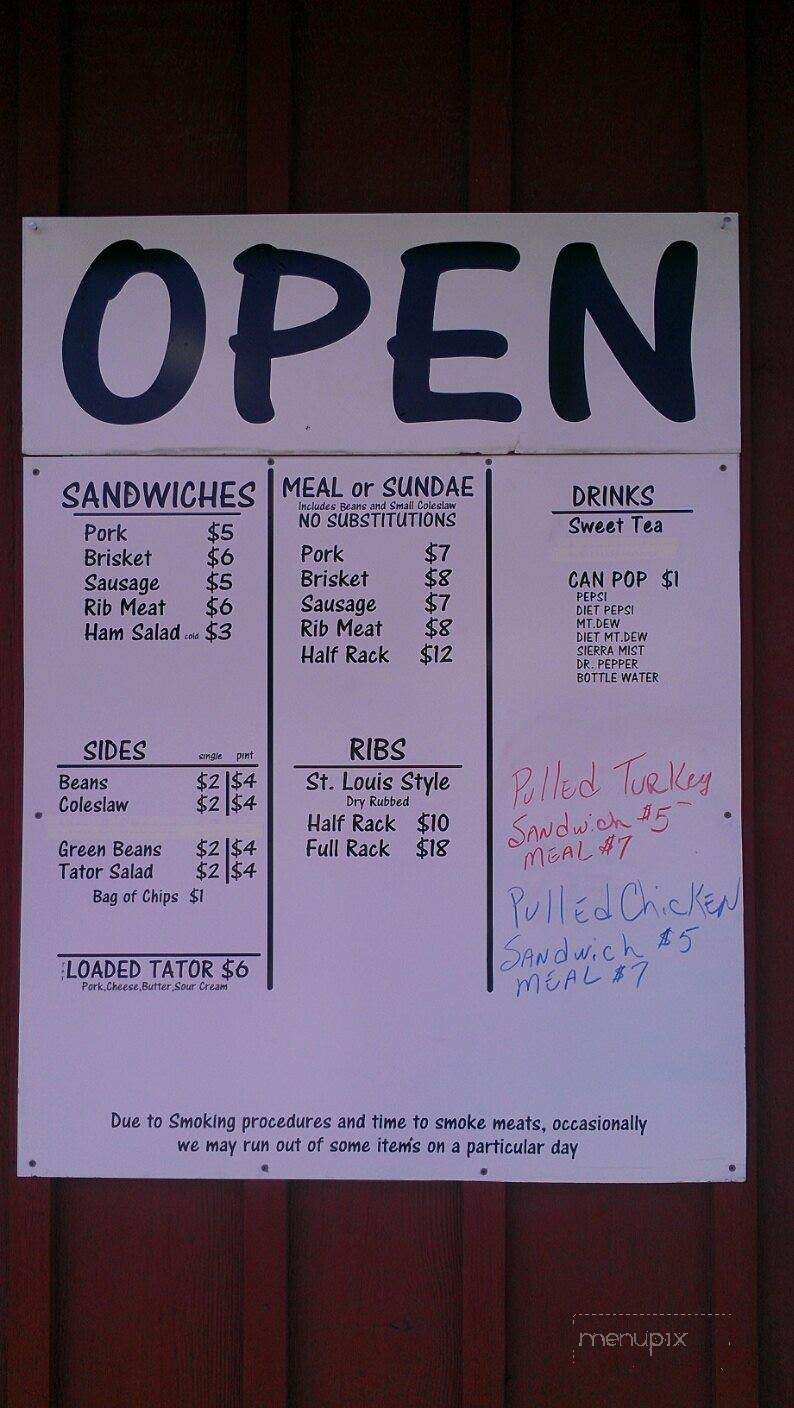 OPEN
SANDWICHES
Pork $5
Brisket $6
Sausage $5
Rib Meat $6
Ham Salad cold $3
SIDES single pint
Beans $2 $4
Coleslaw $2 $4
Green Beans $2 $4
Tator Salad $2 $4
Bag of Chips $1
LOADED TATOR $6
Pork,Cheese,Butter,Sour Cream
MEAL or SUNDAE
Includes Beans and Small Coleslaw
NO SUBSTITUTIONS
Pork $7
Brisket $8
Sausage $7
Rib Meat $8
Half Rack $12
RIBS
St. Louis Style
Dry Rubbed
Half Rack $10
Full Rack $18
DRINKS
Sweet Tea
CAN POP $1
PEPSI
DIET PEPSI
MT.DEW
DIET MT.DEW
SIERRA MIST
DR. PEPPER
BOTTLE WATER
Pulled Turkey
Sandwich $5
MEAL $7
Pulled Chicken
Sandwich $5
MEAL $7
Due to Smoking procedures and time to smoke meats, occasionally
we may run out of some items on a particular day
menupix